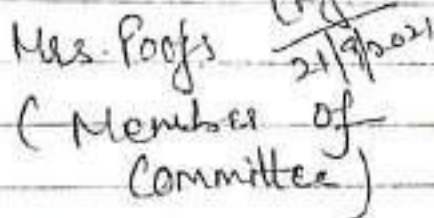 Mrs. Pooja
21/9/2021
(Member of
Committee)